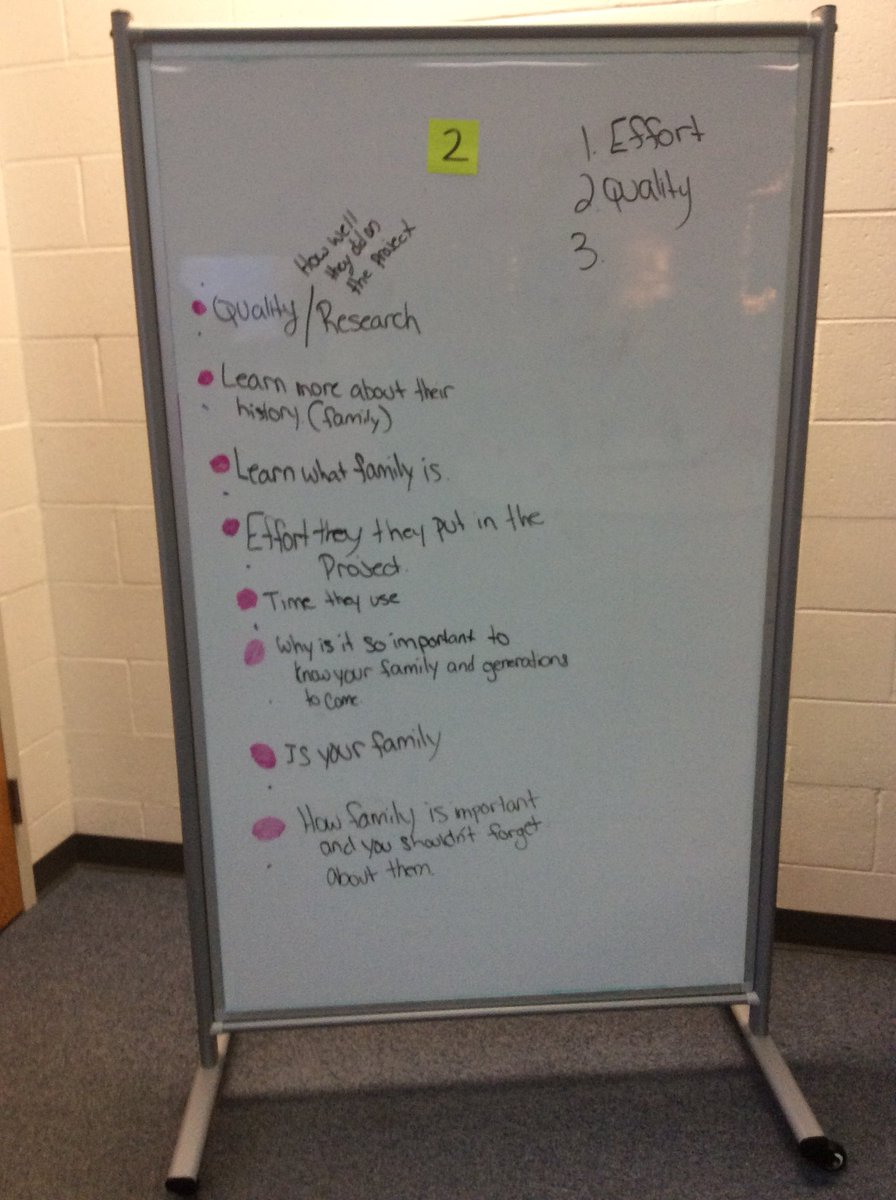 2
1. Effort
2 Quality
3.
How well
they did on
the project
Quality/Research
Learn more about their
history (family)
Learn what family is.
Effort they they put in the
Project.
Time they use
Why is it so important to
know your family and generations
to come.
Is your family
How family is mportant
and you shouldn't forget
about them.